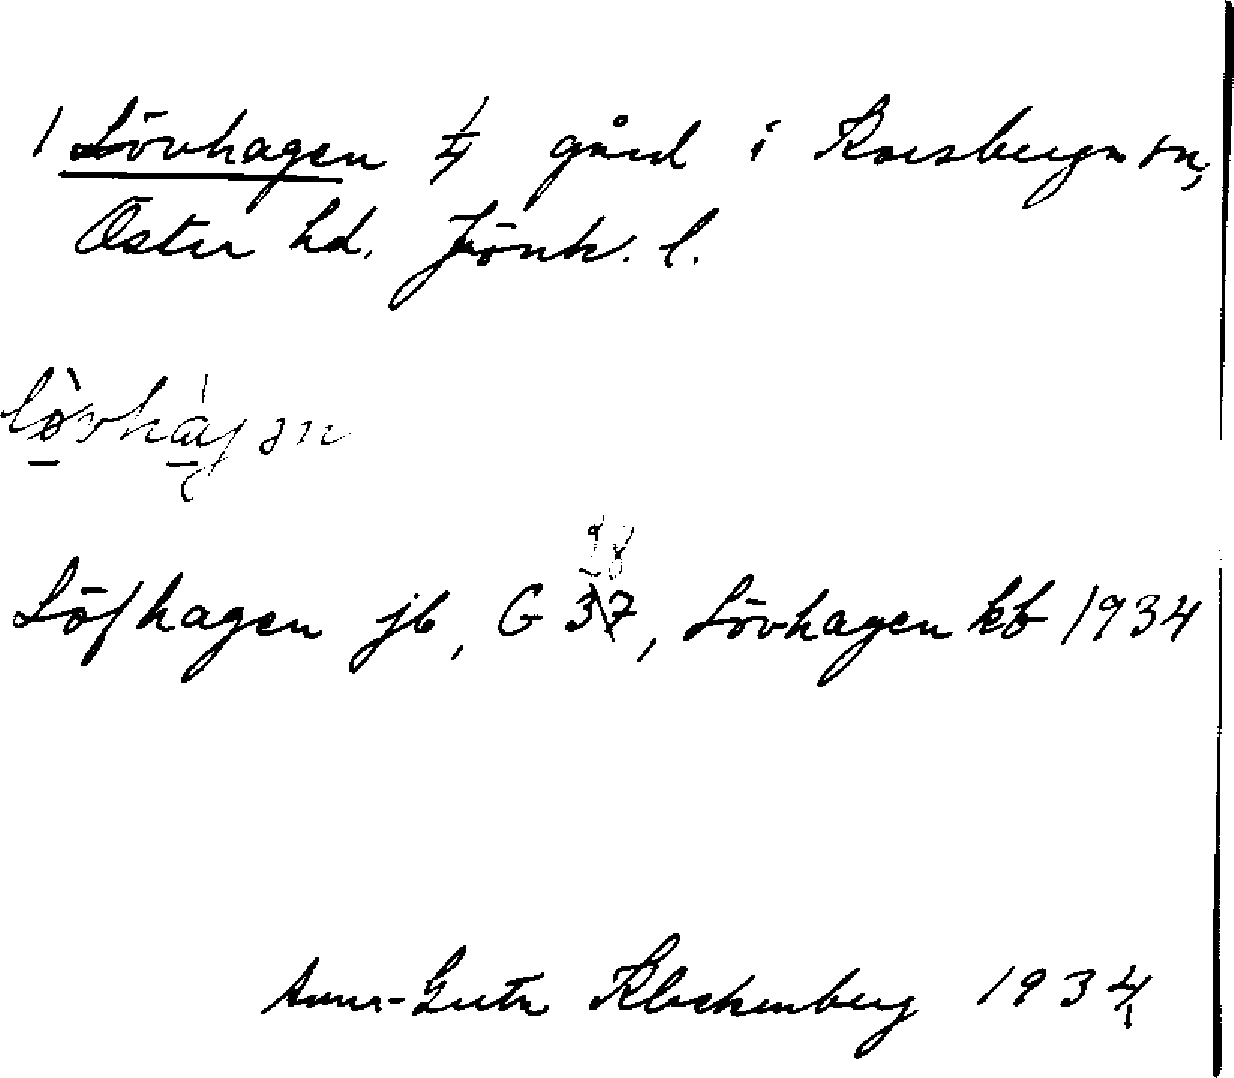 1 Lövhagen 1/4 gård i Korsberga sn,
Öster hd. Jönk. l.
Löfhagen jb, G 37, Lövhagen kb 1934
28
Anna-Greta Klockenberg 1934